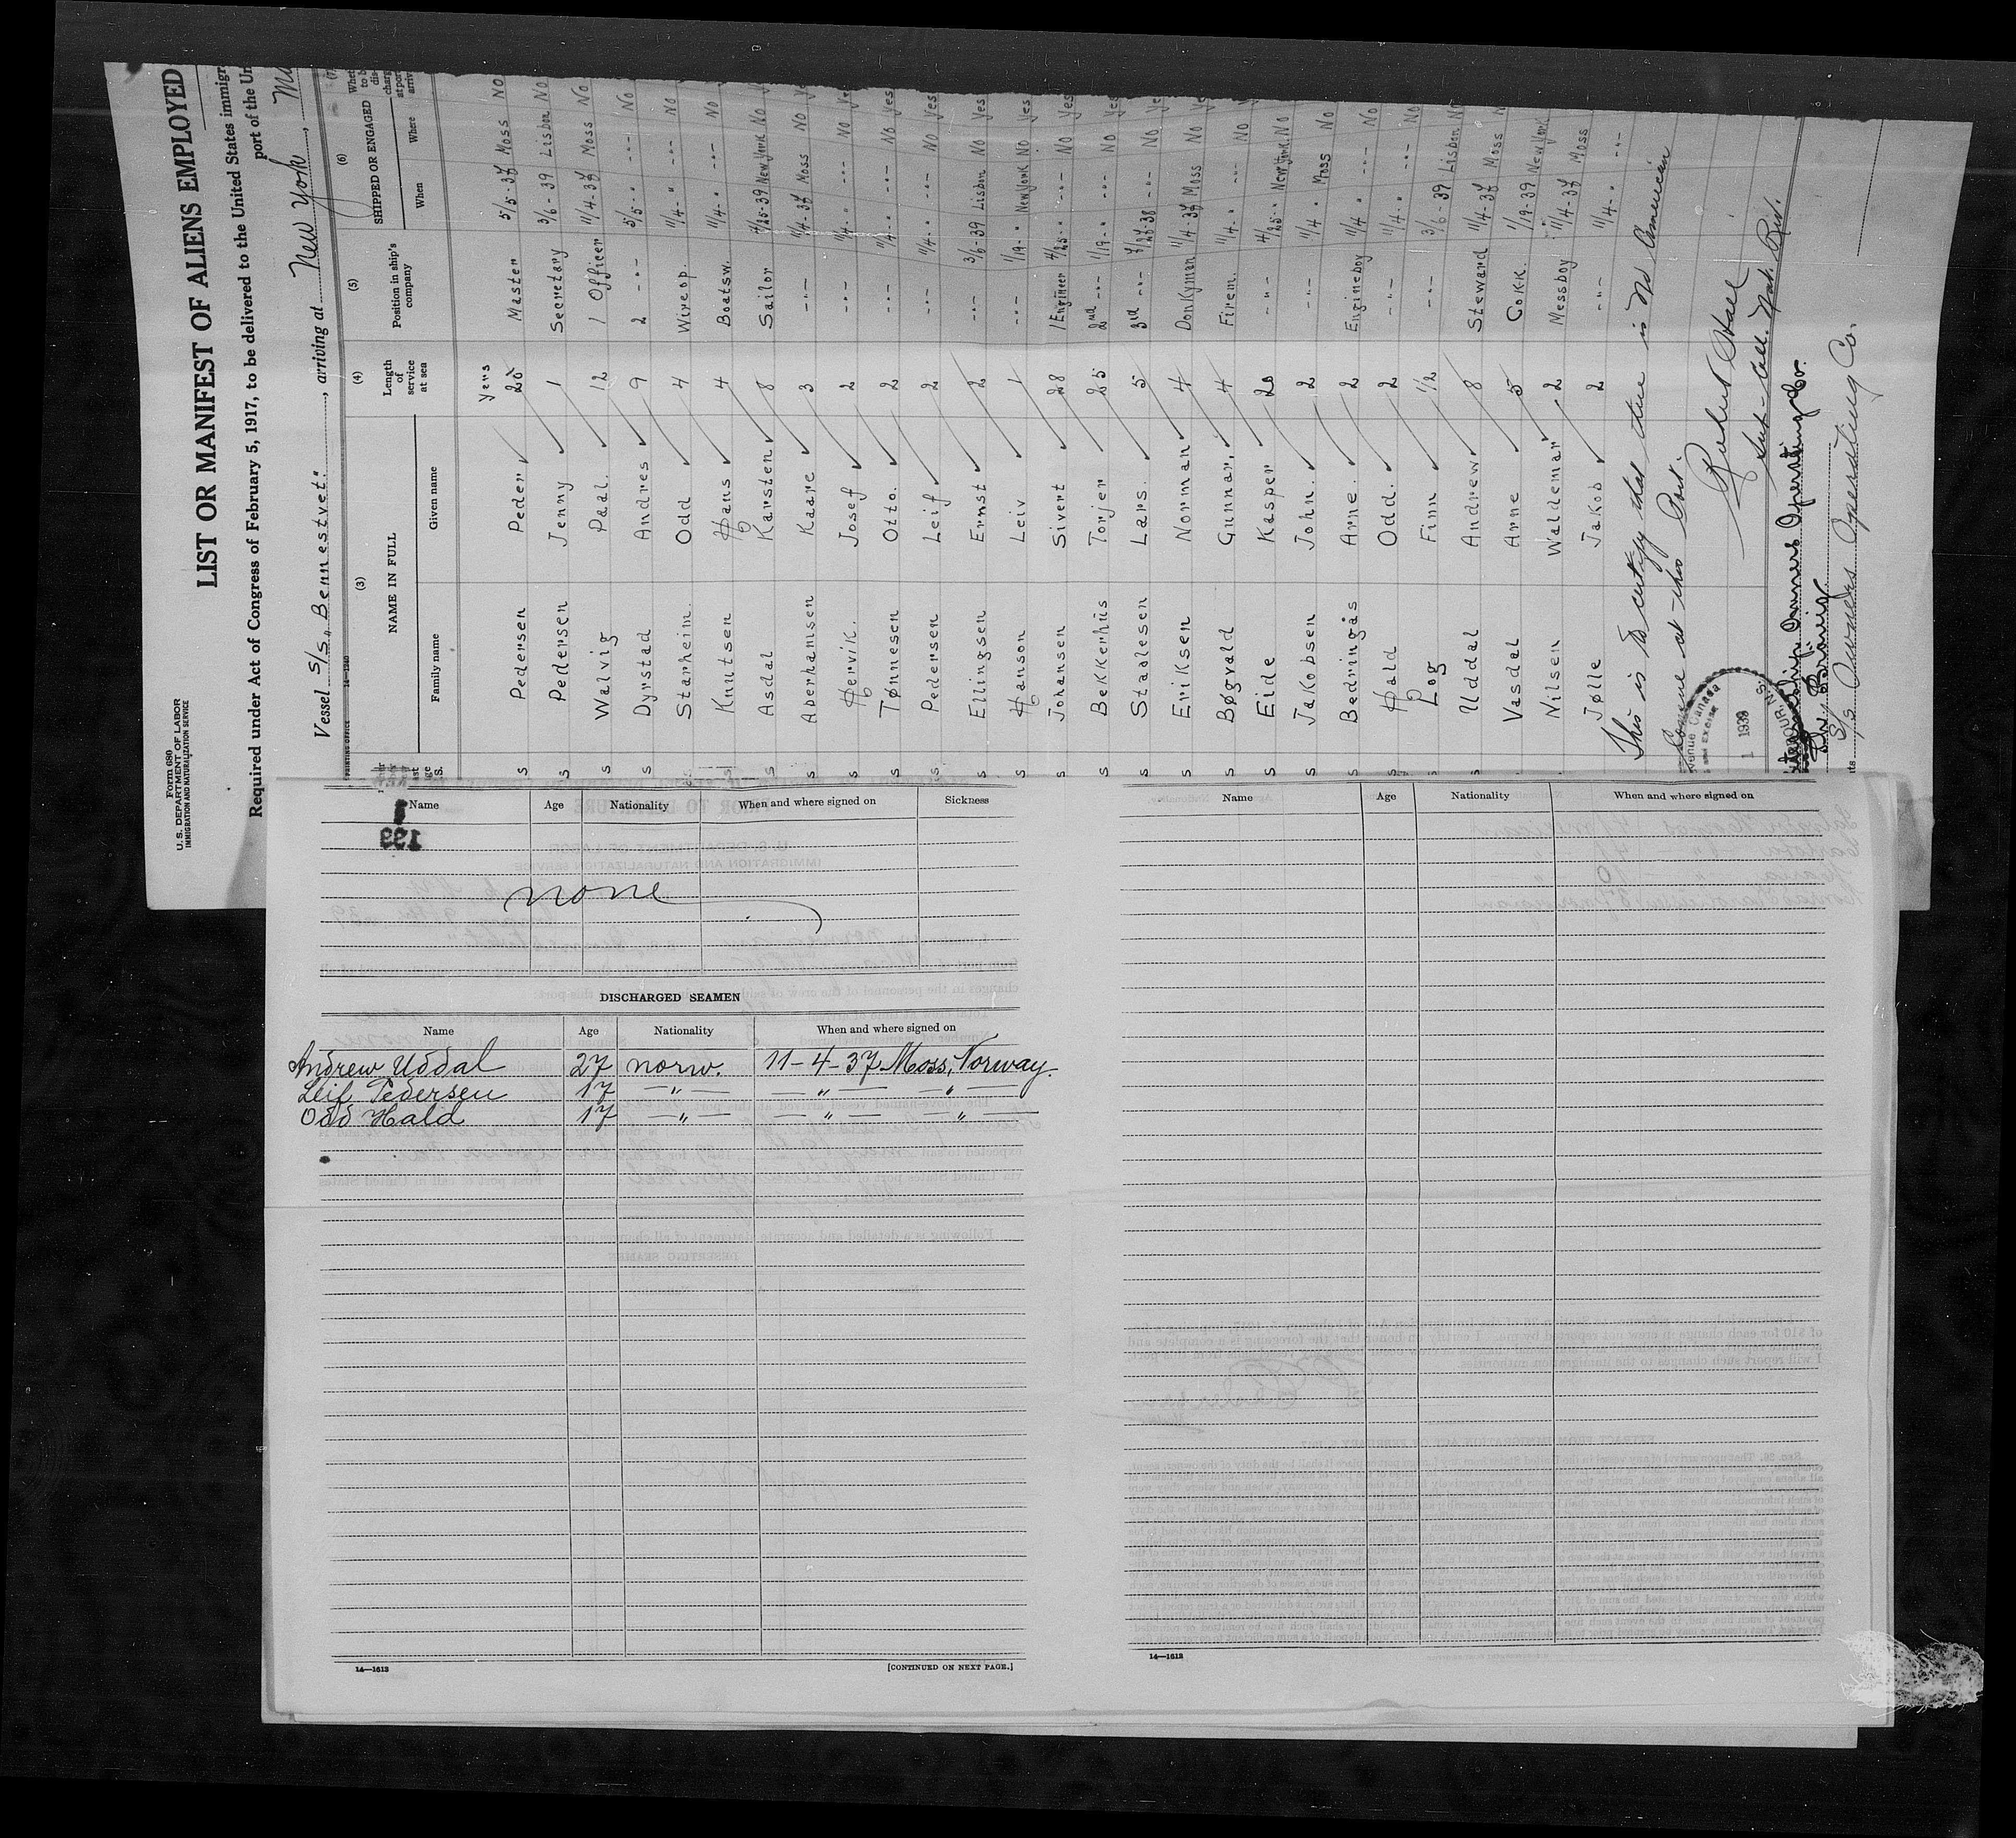 Form 680
U. S. DEPARTMENT OF LABOR
IMMIGRATION AND NATURALIZATION SERVICE
LIST OR MANIFEST OF ALIENS EMPLOYED
Required under Act of Congress of February 5, 1917, to be delivered to the United States immigr
port of the Un
Vessel S/S „Bennestvet", arriving at New York,
(3) (4) (5) (6)
NAME IN FULL Length of service at sea Position in ship's company SHIPPED OR ENGAGED
Family name Given name When Where
yers
s Pedersen Peder 25 Master 5/5-37 Moss No
s Pedersen Jenny 1 Secretary 3/6-39 Lisbon No
s Walvig Paal. 12 1 Officer 11/4-37 Moss No
s Dyrstad Andres 9 2 -"- 5/5-" -"- No
s Stanheim. Odd 4 Wireop. 11/4-" -"- No
s Knutsen Hans 4 Boatsw. 11/4-" -"- No
s Asdal Karsten 8 Sailor 4/25-39 New York No
s Aberhamsen Kaare 3 -"- 11/4-37 Moss No
s Hervik. Josef 2 -"- 11/4-" -"- No Yes
s Tønnesen Otto. 2 -"- 11/4-" -"- No Yes
s Pedersen Leif 2 -"- 11/4-" -"- No Yes
s Ellingsen Ernst 2 -"- 3/6-39 Lisbon No Yes
s Hanson Leiv 1 -"- 1/19-" New York No Yes
s Johansen Sivert 28 1 Engineer 4/25-" -"- No Yes
s Bekkerhus Torjer 25 2nd -"- 1/19-" -"- No Yes
s Staalesen Lars. 5 3rd -"- 7/27-38 -"- No Yes
s Eriksen Norman 4 Donkyman 11/4-37 Moss No
s Bøgvald Gunnar. 4 Firem. 11/4-" -"- No
s Eide Kasper 20 -"- 4/25-" New York. No
s Jakobsen John. 2 -"- 11/4-" Moss No
s Bedringås Arne. 2 Engineboy 11/4-" -"- No
s Hald Odd. 2 -"- 11/4-" -"- No
s Log Finn 1/2 -"- 3/6-39 Lisbon No
s Uddal Andrew 8 Steward 11/4-37 Moss
Vasdal Arne 5 Cokk. 1/19-39 New York
s Nilsen Waldemar 2 Messboy 11/4-37 Moss
s Jølle Jakob 2 -"- 11/4-" -"-
This is to certify that there is No American
Consul at this Port.
Robert Hall
Sub-Coll. Nat. Rev.
1 1939
S/S Owners Operating Co.
Name Age Nationality When and where signed on Sickness
none
DISCHARGED SEAMEN
Name Age Nationality When and where signed on
Andrew Uddal 27 norw. 11-4-37 Moss, Norway.
Leif Pedersen 17 —"— —"— —"—
Odd Hald 17 —"— —"— —"—
14—1613
[CONTINUED ON NEXT PAGE.]
Name Age Nationality When and where signed on
14—1613